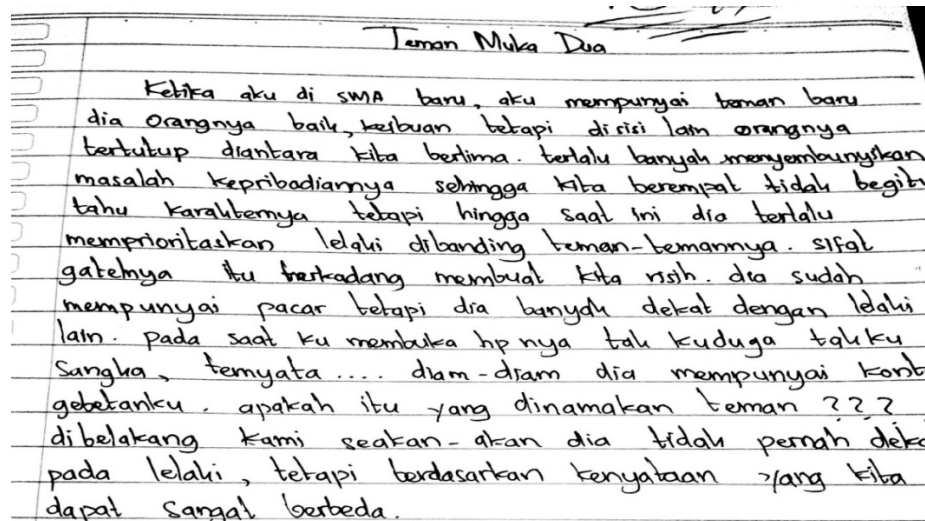 Teman Muka Dua
Ketika aku di SMA baru, aku mempunyai teman baru
dia orangnya baik, keibuan tetapi disisi lain orangnya
tertutup diantara kita berlima. terlalu banyak menyembunyikan
masalah kepribadiannya sehingga kita berempat tidak begit
tahu karakternya tetapi hingga saat ini dia terlalu
memprioritaskan lelaki dibanding teman-temannya. sifat
gatelnya itu terkadang membuat kita risih. dia sudah
mempunyai pacar tetapi dia banyak dekat dengan lelaki
lain. pada saat ku membuka hp nya tak kuduga takku
Sangka, ternyata .... diam-diam dia mempunyai kont
gebetanku. apakah itu yang dinamakan teman ???
dibelakang kami seakan-akan dia tidak pernah deka
pada lelaki, tetapi berdasarkan kenyataan yang kita
dapat sangat berbeda.